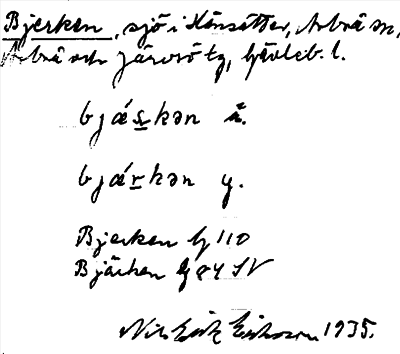 Bjerken, sjö i Hänsätter, Arbrå sn,
Arbrå och Järvsö tg, Gävleb. l.
bjáʂkən ä.
bjárkən y.
Bjerken Gg 110
Bjärken Gg 84 SV
Nils Erik Eriksson 1935.